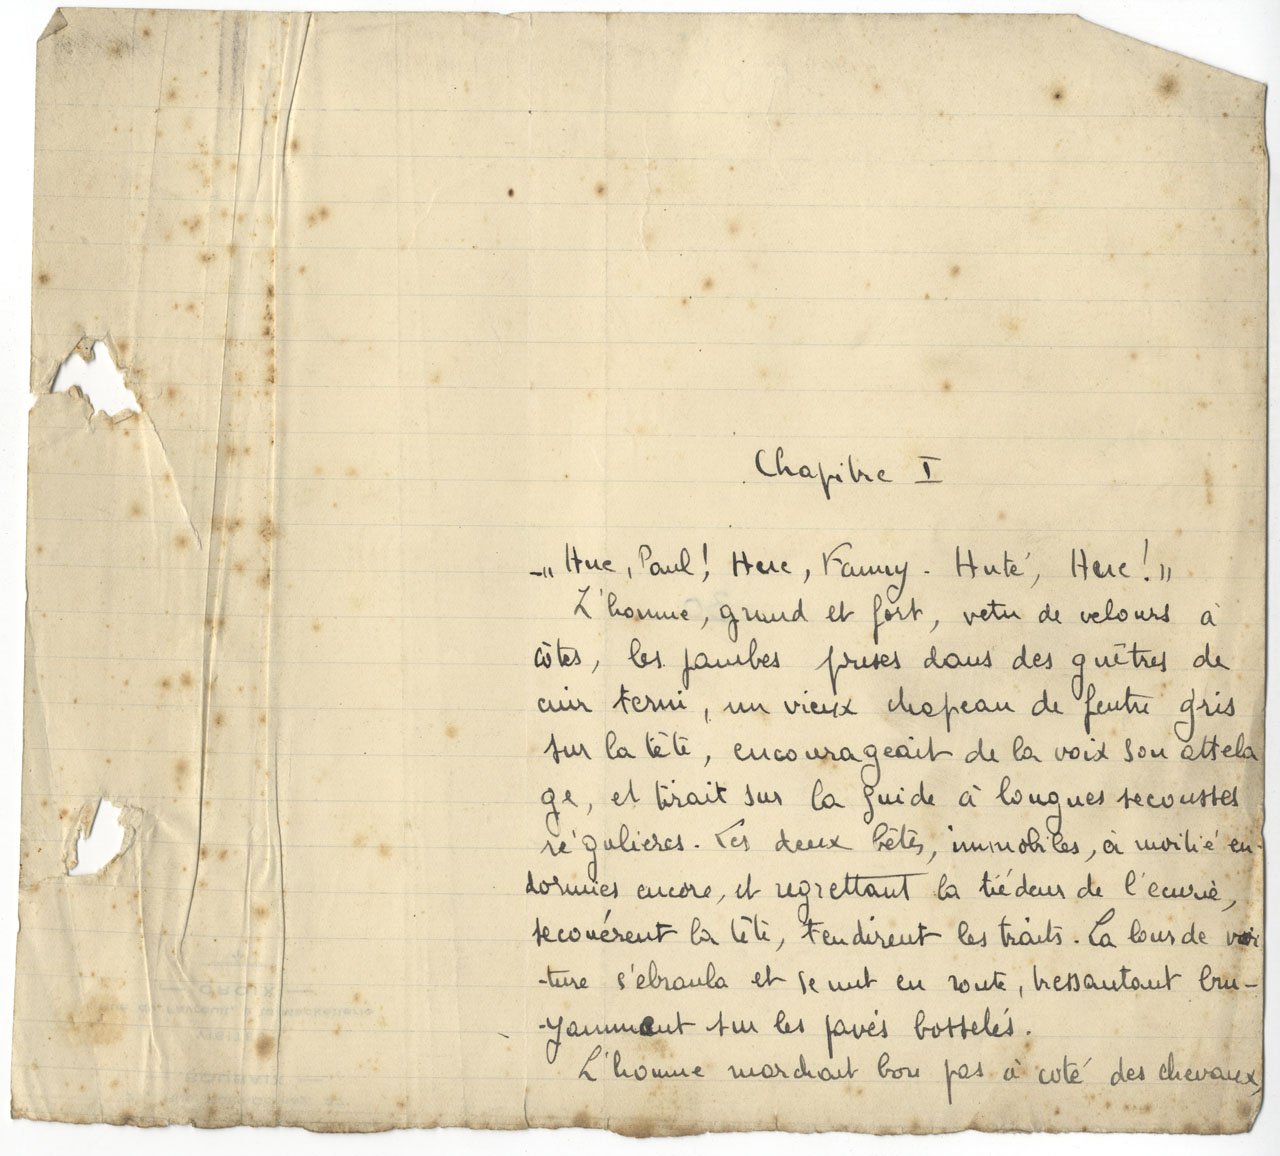 Chapitre I
-„ Hue, Paul! Hue, Fanny. Huté, Hue! „
L'homme, grand et fort, vetu de velours à
côtes, les jambes prises dans des guêtres de
cuir terni, un vieux chapeau de feutre gris
sur la tête, encourageait de la voix son attela
ge, et tirait sur la guide à longues secousses
régulieres. Les deux bêtes, immobiles, à moitié en-
dormies encore, et regrettant la tiédeur de l'écurie,
secouérent la tête, tendirent les traits. La lourde voi
-ture s'ebranla et se mit en route, tressautant bru-
-yamment sur les pavés bosselés.
L'homme marchait bon pas à coté des chevaux,